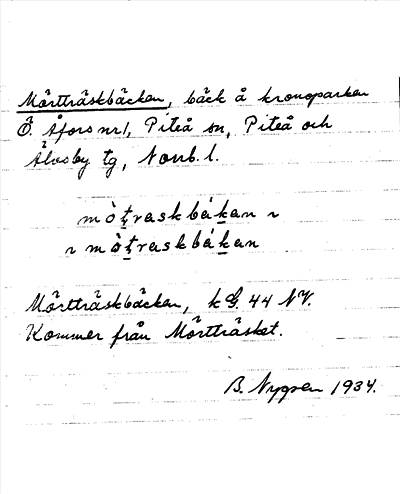 Mörtträskbäcken, bäck å kronoparken
Ö. Åfors nr 1, Piteå sn, Piteå och
Älvsby tg, Norrb. l.
mò̀ṭraskbákan
mò̀ṭraskbákan
Mörtträskbäcken, k bl. 44 NV.
Kommer från Mörtträsket.
B. Nygren 1934.